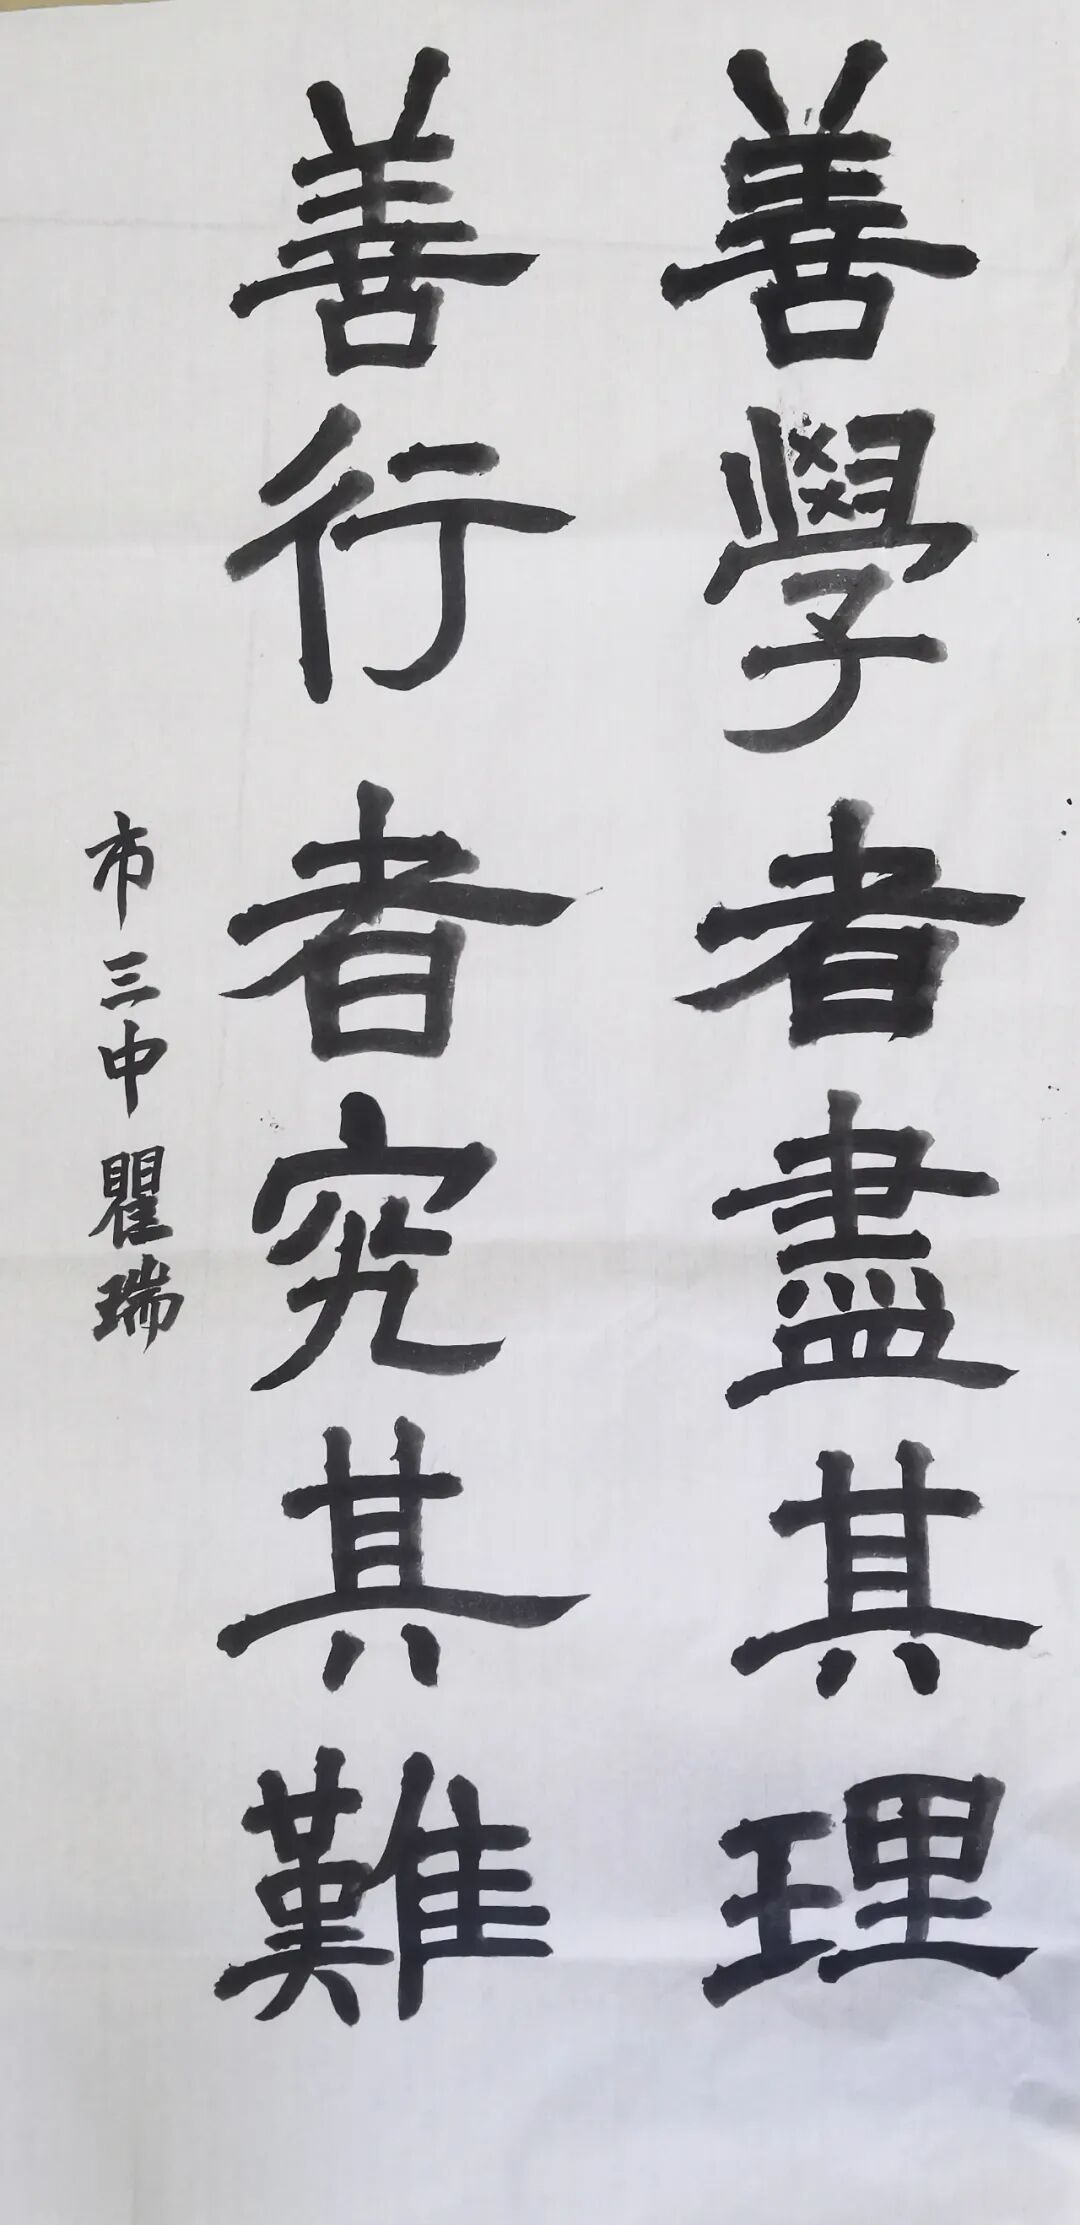 善學者盡其理
善行者究其難
市三中瞿瑞